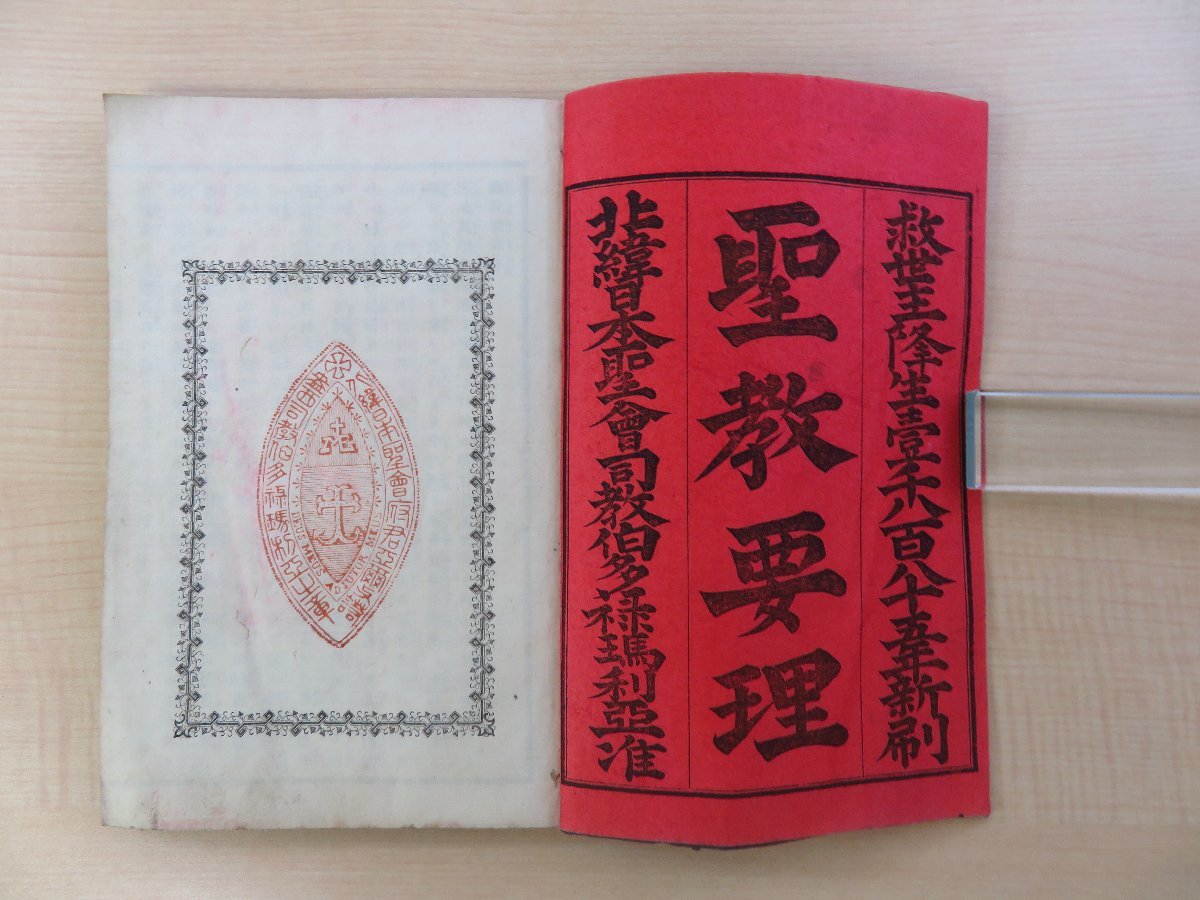 救世主降生壹千八百八十五年新刷
聖教要理
北緯日本聖會司教伯多祿瑪利亞准
DEUS MEUS
ADJUTOR MEUS